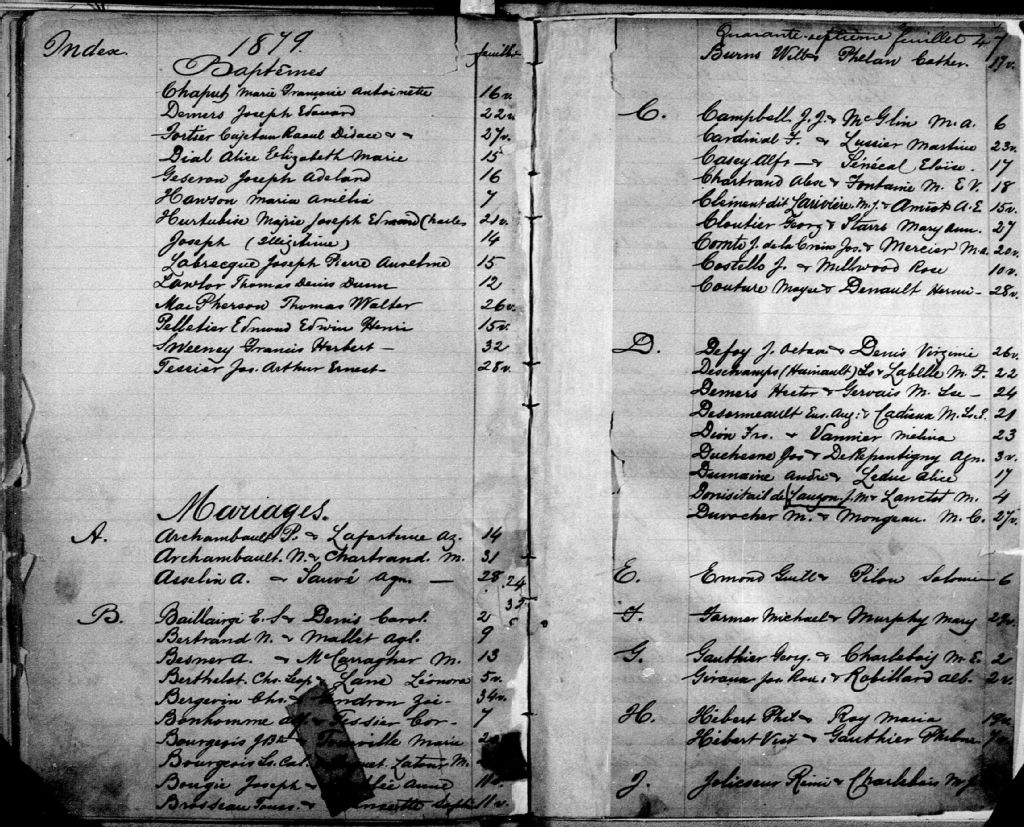 Index
1879.
feuillet
Baptêmes
Chaput Marie Françoise Antoinette 16v.
Demers Joseph Edouard 22v.
Fortier Cajetan Raoul Didace 27v.
Dial Alice Elizabeth Marie 15
Geseron Joseph Adelard 16
Hawson Maria Amélia 7
Hurtubise Marie Joseph Edmond Charles 21v.
Joseph (Illégitime) 14
Labrecque Joseph Pierre Anselme 15
Lawlor Thomas Denis Dunn 12
MacPherson Thomas Walter 26v.
Pelletier Edmond Edwin Henri 15v.
Sweeney Francis Herbert — 32
Tessier Jos. Arthur Ernest — 28v.
Mariages.
A. Archambault P. & Lafortune Az. 14
Archambault N. & Chartrand M. 31
Asselin A. & Sauvé Agn. — 28. 24
35
B. Baillairgé E. S & Denis Carol. 2
Bertrand N. & Mallet Agl. 9
Besner A. & McCarragher M. 13
Berthelot Chs. Lep & Lane Léonora 5v.
Bergevin Chs. Gendron Zoé — 34v.
Bonhomme & Tessier Cor — 7
Bourgeois J Bte Tourville Marie
Bourgeois Ls. Cal. Latour M.
Bougie Joseph & Anne 11
Brosseau Touss. & Sophie 11v.
Quarante-septième feuillet 47
Burns Will & Phelan Cather. 19v.
C. Campbell J. J. & McGlin M. A. 6
Cardinal F. & Lussier Martine 23v.
Casey Alf. — & Sénécal Eloise. 17
Chartrand Alex & Fontaine M. E V. 18
Clément dit Larivière M. J. & Amiot A. E 15v.
Cloutier Georg & Starrs Mary Ann. 27
Comte J. de la Croix Jos. & Mercier M. a. 20v.
Costello J. & Millwood Rose 10v.
Couture Moyse & Denault Hermi — 28v.
D. Defoy J. Octave & Denis Virginie 26v.
Deschamps (Hainault) Ls & Labelle M. F. 22
Demers Hector & Gervais M. Lse — 24
Desormeault Eus. Aug: & Cadieux M. Ls. J. 21
Dion Frs. & Vannier Melina 23
Duchesne Jos & DeRepentigny Agn. 3v.
Dumaine André & Leduc Alice 17
Lauzon J. M. & Lanctot M. 4
Durocher M. & Mongeau. M. C. 27v.
E. Emond Guill & Pilon Salomé — 6
F. Farmer Michael & Murphy Mary 29v.
G. Gauthier Georg. & Charlebois M. E. 2
Giroux Jos & Robillard Alb. 2v.
H. Hébert Phil & Roy Maria 19v.
Hébert Vict & Gauthier
J. Jolicoeur Rémi & Charlebois M. J.